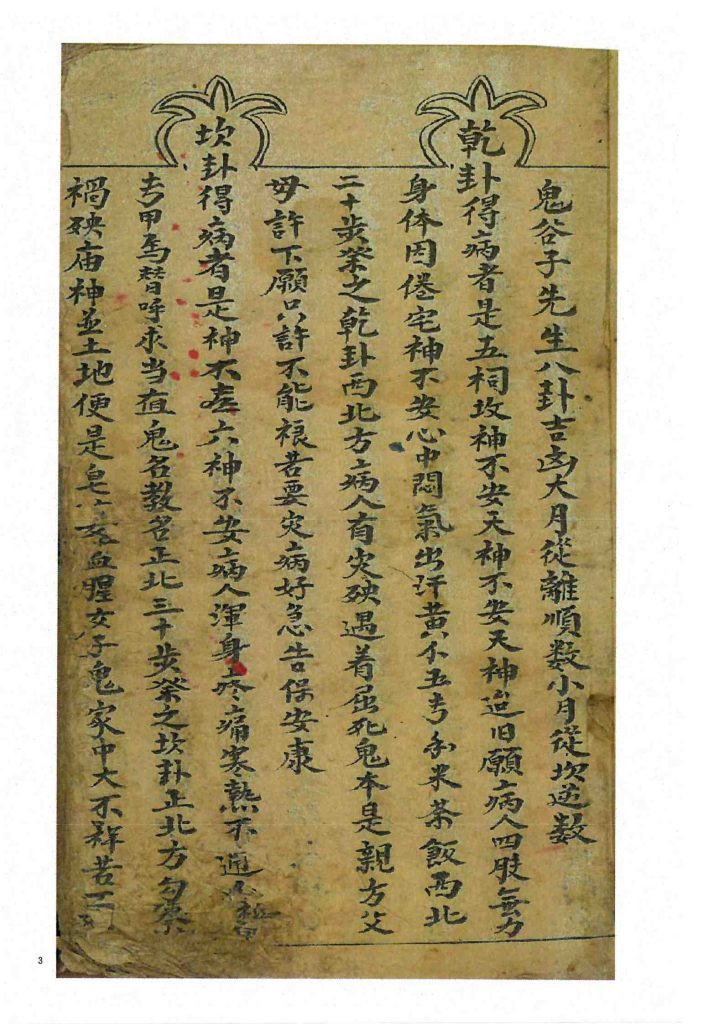 鬼谷子先生八卦吉凶大月從離順数小月從坎逆数
乾卦得病者是五祠攻神不安天神不安天神追旧願病人四肢無力
身体困倦宅神不安心中悶氣出汗黄不五㝵和米茶飯西北
二十步祭之乾卦西北方病人有灾殃遇着屈死鬼本是親方父
母許下願只許不能禳若要灾病好急告保安康
坎卦得病者是神不㝵六神不安病人渾身疼痛寒熱不通
甲馬替呼求当值鬼名教名正北三十步祭之坎卦正北方勾
禍殃庙神並土地便是皂 血腥女子鬼家中大不祥若
3